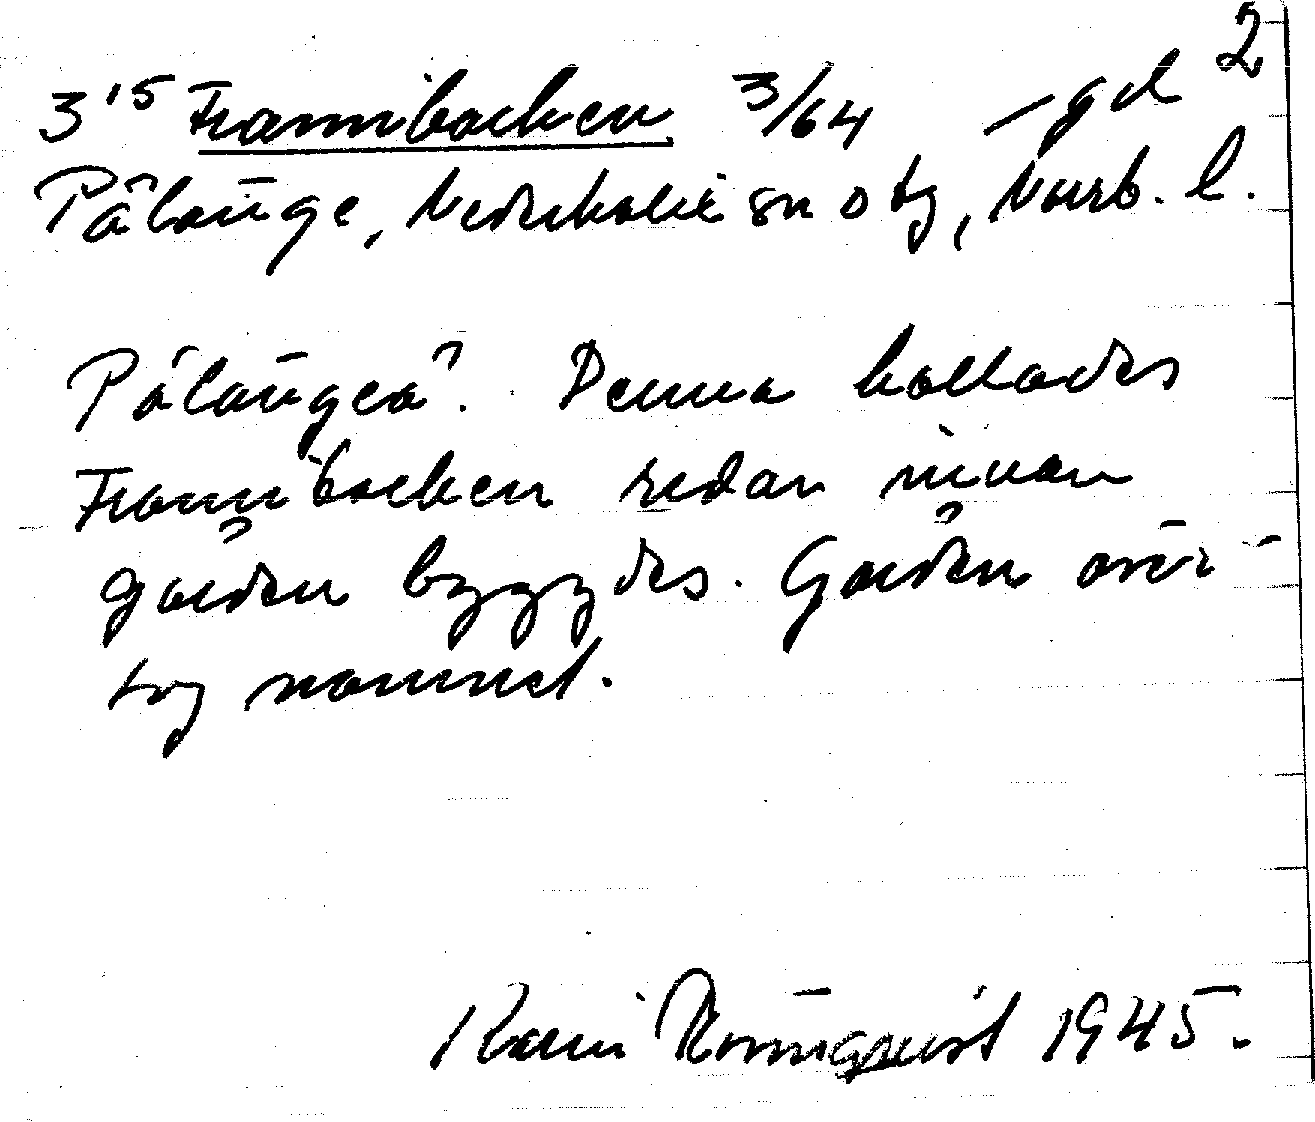 2
3 15 Frannibacken 3/64 - gd
Pålänge, Nederkalix sn o tg, Norrb. l.
Pålängeå. Denna kallades
Frannibacken redan innan
gården byggdes. Gården över-
tog namnet.
Karin Rönnqvist 1945.